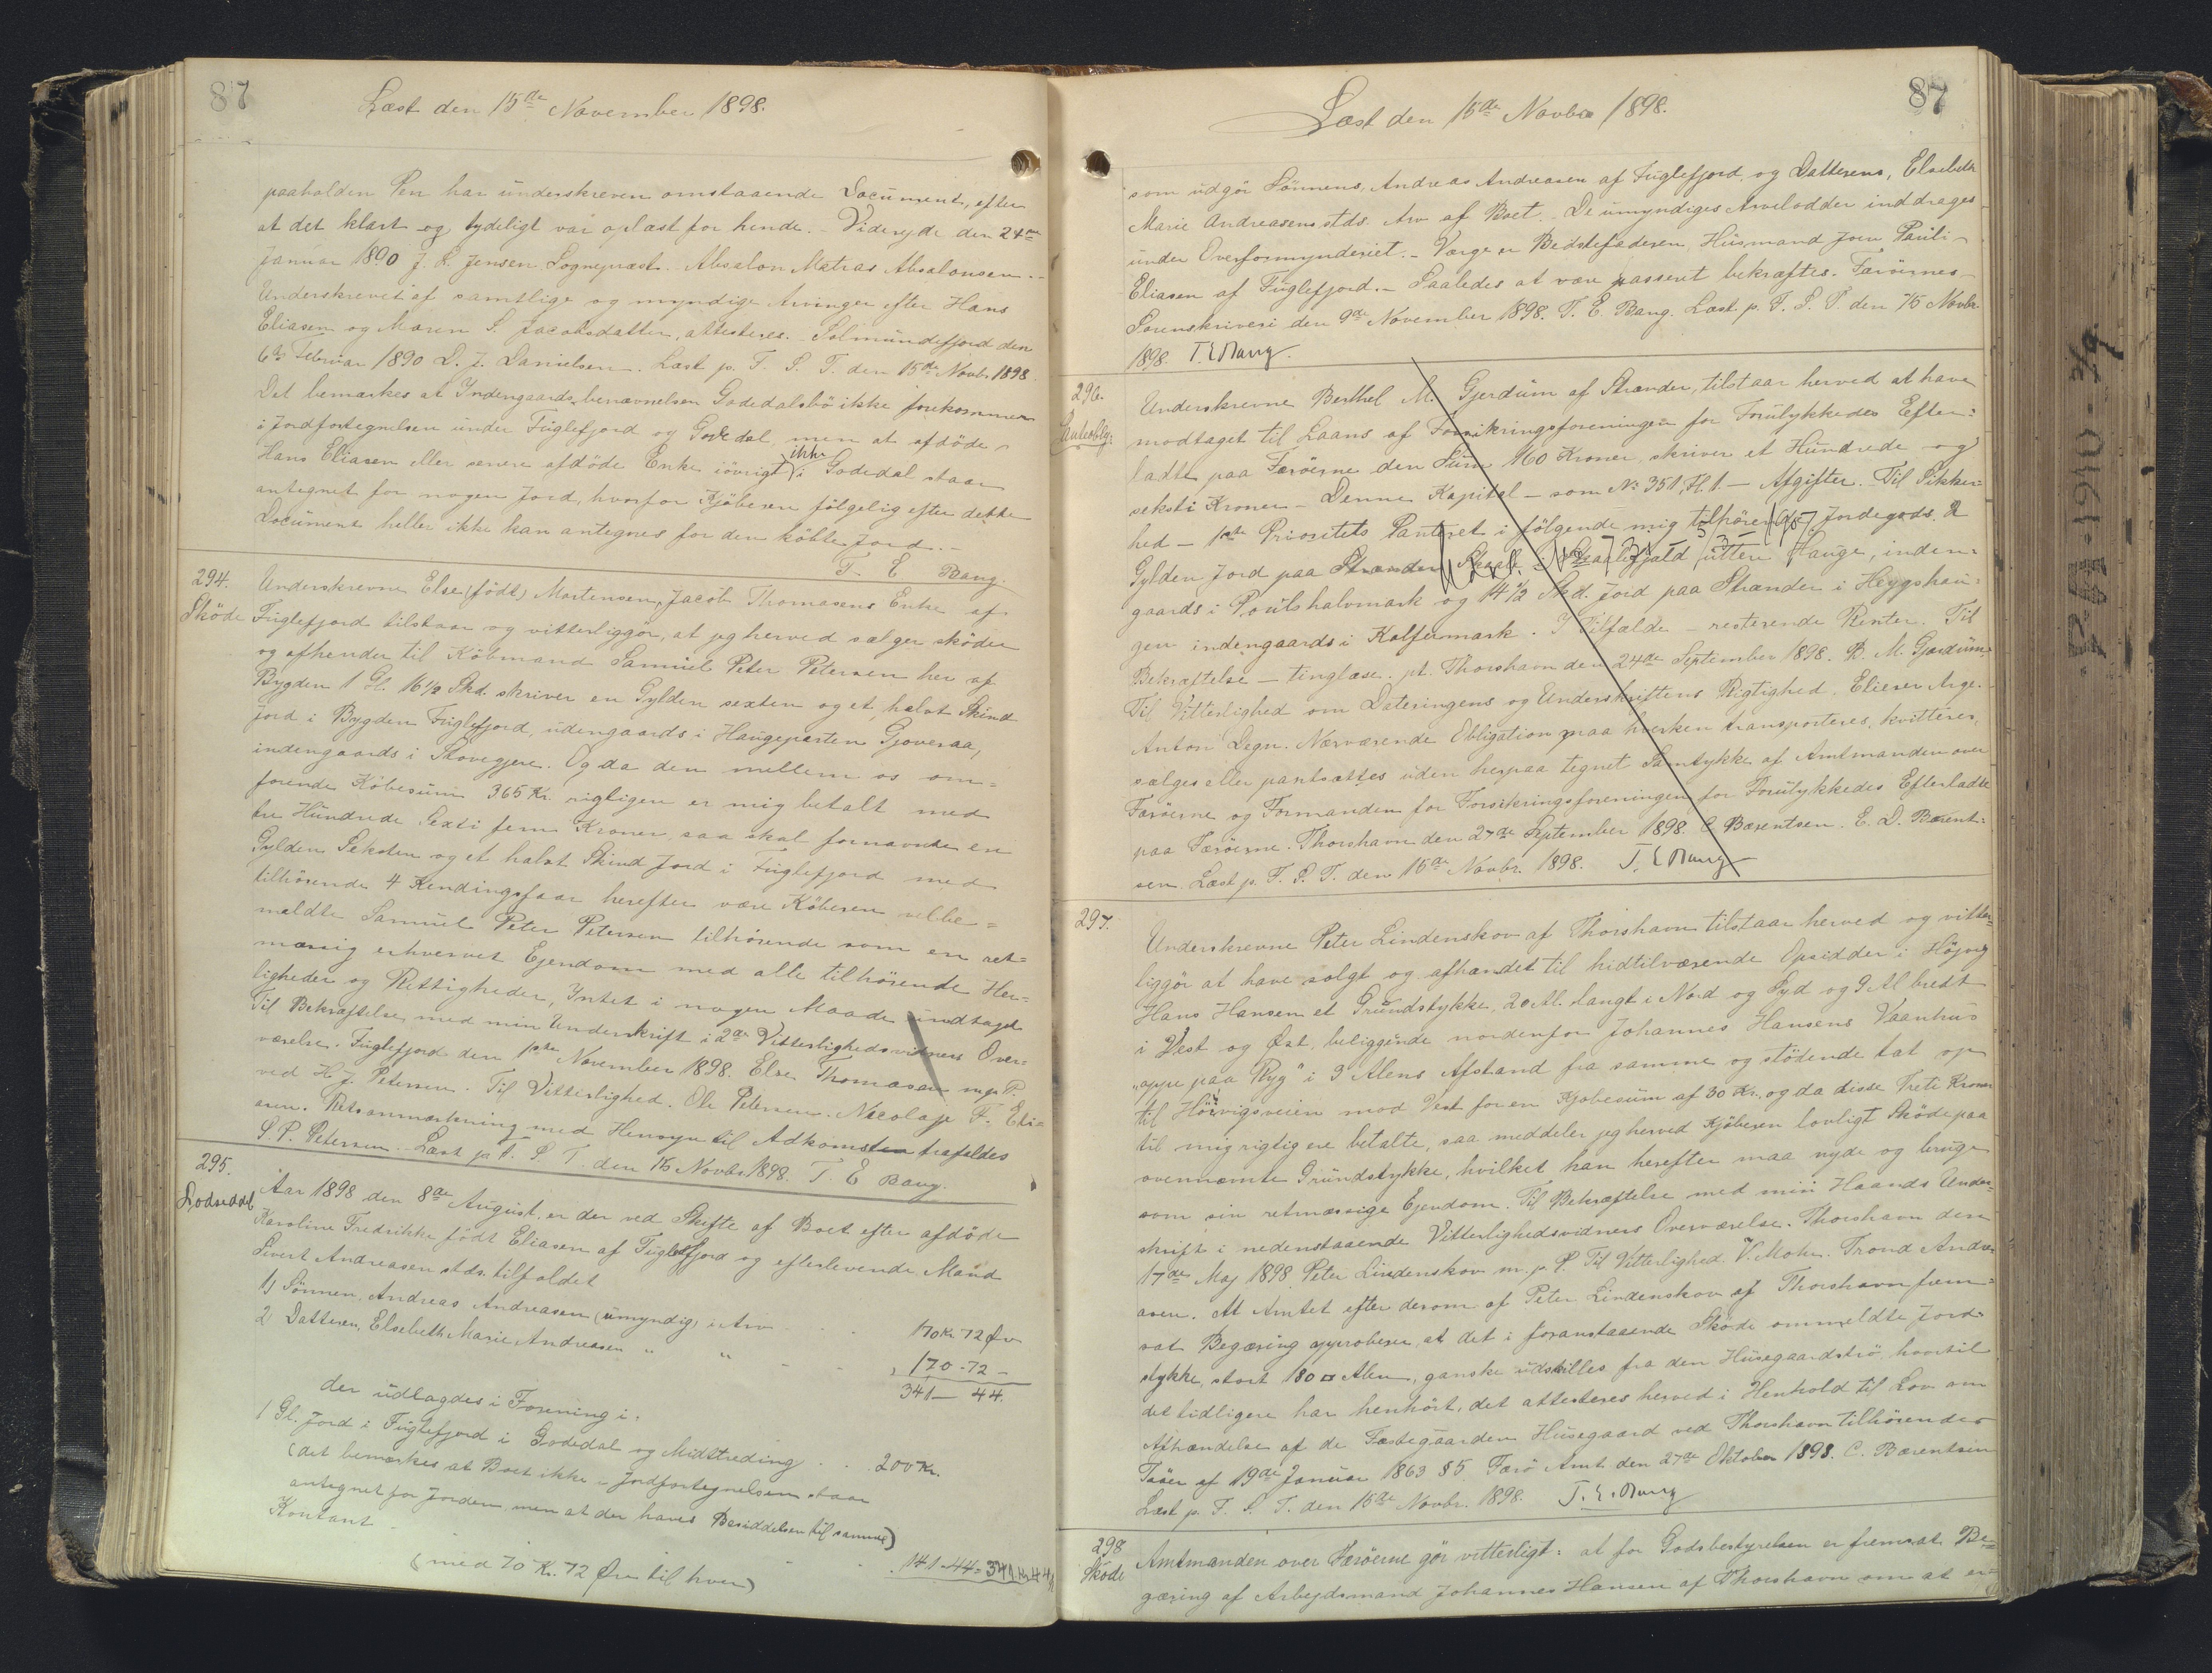 87
Læst den 15de November 1898.
paaholden Pen har underskreven omstaaende Document, efter
at det klart og tydeligt var oplæst for hende. - Viderejde den 24de
Januar 1890 J. L. Jensen Sognepræst. Absalon Matras Absalonsen. -
Underskrevet af samtlige og myndige Arvinger efter Hans
Eliasen og Maren S. Jacobsdatter, attesteres. Solmundefjord den
6te Februar 1890 D. J. Danielsen. Læst p. F. S. T. den 15de Novbr. 1898.
Det bemærkes at Indengaards benævnelsen Godedalsbö ikke forekommer
i Jordfortegnelsen under Fuglefjord og Godedal men at afdöde
Hans Eliasen eller senere afdöde Enke iövrigt ikke i Godedal staar
antegnet for nogen Jord, hvorfor Kjöberen fölgelig efter dette
Document heller ikke kan antegnes for den köbte Jord. -
T. E Bang.
294.
Sköde
Underskrevne Else (födt) Mortensen, Jacob Thomasens Enke af
Fuglefjord tilstaar og vitterliggör, at jeg herved sælger sköder
og afhender til Köbmand Samuel Peter Petersen her af
Bygden 1 Gl. 16 1/2 Skd. skriver en Gylden sexten og et halvt Skind
Jord i Bygden Fuglefjord, udengaards i Haugeparten Gjoveraa,
indengaards i Skovegjere. Og da den mellem os om=
forende Köbesum 365 Kr. rigtigen er mig betalt med
tre Hundrede Sexti fem Kroner, saa skal fornævnte en
Gylden Seksten og et halvt Skind Jord i Fuglefjord med
tilhörende 4 Kendingsfaar herefter være Köberen velbe=
meldte Samuel Peter Petersen tilhörende som en ret=
mæssig erhvervet Ejendom med alle tilhörende Her=
ligheder og Rettigheder, Intet i nogen Maade undtaget
Til Bekræftelse med min Underskrift i 2de Vitterlighedsvidners Over=
værelse. Fuglefjord den 1ste November 1898. Else Thomasen m.p.P.
ved H. J. Petersen. Til Vitterlighed. Ole Petersen. Nicolaje F. Eli=
asen. Retsanmærkning med Hensyn til Adkomsten frafaldes
S. P. Petersen. Læst p. F. S. T. den 15 Novbr. 1898. T. E Bang.
295.
Lodseddel
Aar 1898 den 8de August, er der ved Skifte af Boet efter afdöde
Karoline Fredrikke födt Eliasen af Fuglefjord og efterlevende Mand
Sivert Andreasen stds. tilfaldet
1) Sönnen, Andreas Andreasen (umyndig) i Arv . . . 170 Kr 72 Øre
2) Datteren, Elsebeth Marie Andreasen " " - - , 170 - 72 -
341 - 44.
der udlagdes i Forening i.
1 Gl. Jord i Fuglefjord i Godedal og Midtstreding . . . 200 Kr.
(det bemærkes at Boet ikke i Jordfortegnelsen staar
antegnet for Jorden, men at der haves Besiddelsen til samme)
Kontant - - . 141-44 = 341 Kr 44
(med 70 Kr. 72 Øre til hver)
87
Læst den 15de Novbr 1898.
som udgör Sönnens, Andreas Andreasen af Fuglefjord, og Datterens, Elsebeth
Marie Andreasens stds. Arv af Boet. - De umyndiges Arvelodder inddrages
under Overformynderiet. - Værge er Bedstefaderen, Husmand Joen Pauli
Eliasen af Fuglefjord. - Saaledes at være passeret bekræftes. Færöernes
Sorenskriveri den 9de November 1898. T. E. Bang. Læst p. F. S. T. den 15 Novbr.
1898. T. E Bang.
296.
Panteoblg.
Underskrevne Berthel M. Gjerdum af Strander, tilstaar herved at have
modtaget til Laans af Forsikringsforeningen for Forulykkedes Efter=
ladte paa Færöerne den Sum 160 Kroner, skriver et Hundrede og
seksti Kroner - Denne Kapital - som No 351 Fl. 1. - Afgifter. Til Sikker=
hed - 1ste Prioritets Panteret i fölgende mig tilhörende Jordegods. 2
Gylden Jord paa Strander Skaale i Skaalefjeld utten Hauge, inden=
gaards i Pouls halvmark og 14 1/2 Skd. Jord paa Strander i Heygshau=
gen indengaards i Kalfermark. I Tilfælde - resterende Renter. Til
Bekræftelse - tinglæse. pt. Thorshavn den 24de September 1898. B. M. Gjerdum.
Til Vitterlighed om Dateringens og Underskriftens Rigtighed. Elieser Arge.
Anton Degn. Nærværende Obligation maa hverken transporteres, kvitteres,
sælges eller pantsættes uden herpaa tegnet Samtykke af Amtmanden over
Færöerne og Formanden for Forsikringsforeningen for Forulykkedes Efterladte
paa Færöerne. Thorshavn den 27de September 1898. C Bærentsen. E. D. Bærent=
sen. Læst p. F. S. T. den 15de Novbr. 1898. T. E Bang
297.
Underskrevne Peter Lindenskov af Thorshavn tilstaar herved og vitter=
liggör at have solgt og afhændet til hidtilværende Opsidder i Höjvig
Hans Hansen et Grundstykke, 20 Al. langt i Nord og Syd og 9 Al bredt
i Vest og Øst, beliggende nordenfor Johannes Hansens Vaanhus
"oppe paa Ryg" i 3 Alens Afstand fra samme og stödende tæt op
til Höivigsveien mod Vest for en Kjöbesum af 30 Kr., og da disse Treti Kroner
til mig rigtigere betalte, saa meddeler jeg herved Kjöberen lovligt Sköde paa
ovennæmte Grundstykke, hvilket han herefter maa nyde og bruge
som sin retmæssige Ejendom. Til Bekræftelse med min Haands Under=
skrift i nedenstaaende Vitterlighedsvidners Overværelse. Thorshavn den
17de Maj 1898 Peter Lindenskov m. p. P. Til Vitterlighed. V. Mohr. Trond Andre=
asen. At Amtet efter derom af Peter Lindenskov af Thorshavn frem=
sat Begæring approberer, at det i foranstaaende Sköde ommeldte Jord=
stykke, stort 180 □ Alen, ganske udskilles fra den Husegaardströ, hvortil
det tidligere har henhört, det attesteres herved i Henhold til Lov om
Afhændelse af de Fæstegaarden Husegaard ved Thorshavn tilhörende
Tröer af 19de Januar 1863 § 5. Færö Amt den 27de Oktober 1898. C. Bærentsen
Læst p. F. S. T. den 15de Novbr. 1898. T. E. Bang
298
Sköde
Amtmanden over Færöerne gör vitterligt: at for Godsbestyrelsen er fremsat Be=
gæring af Arbejdsmand Johannes Hansen af Thorshavn om at er=